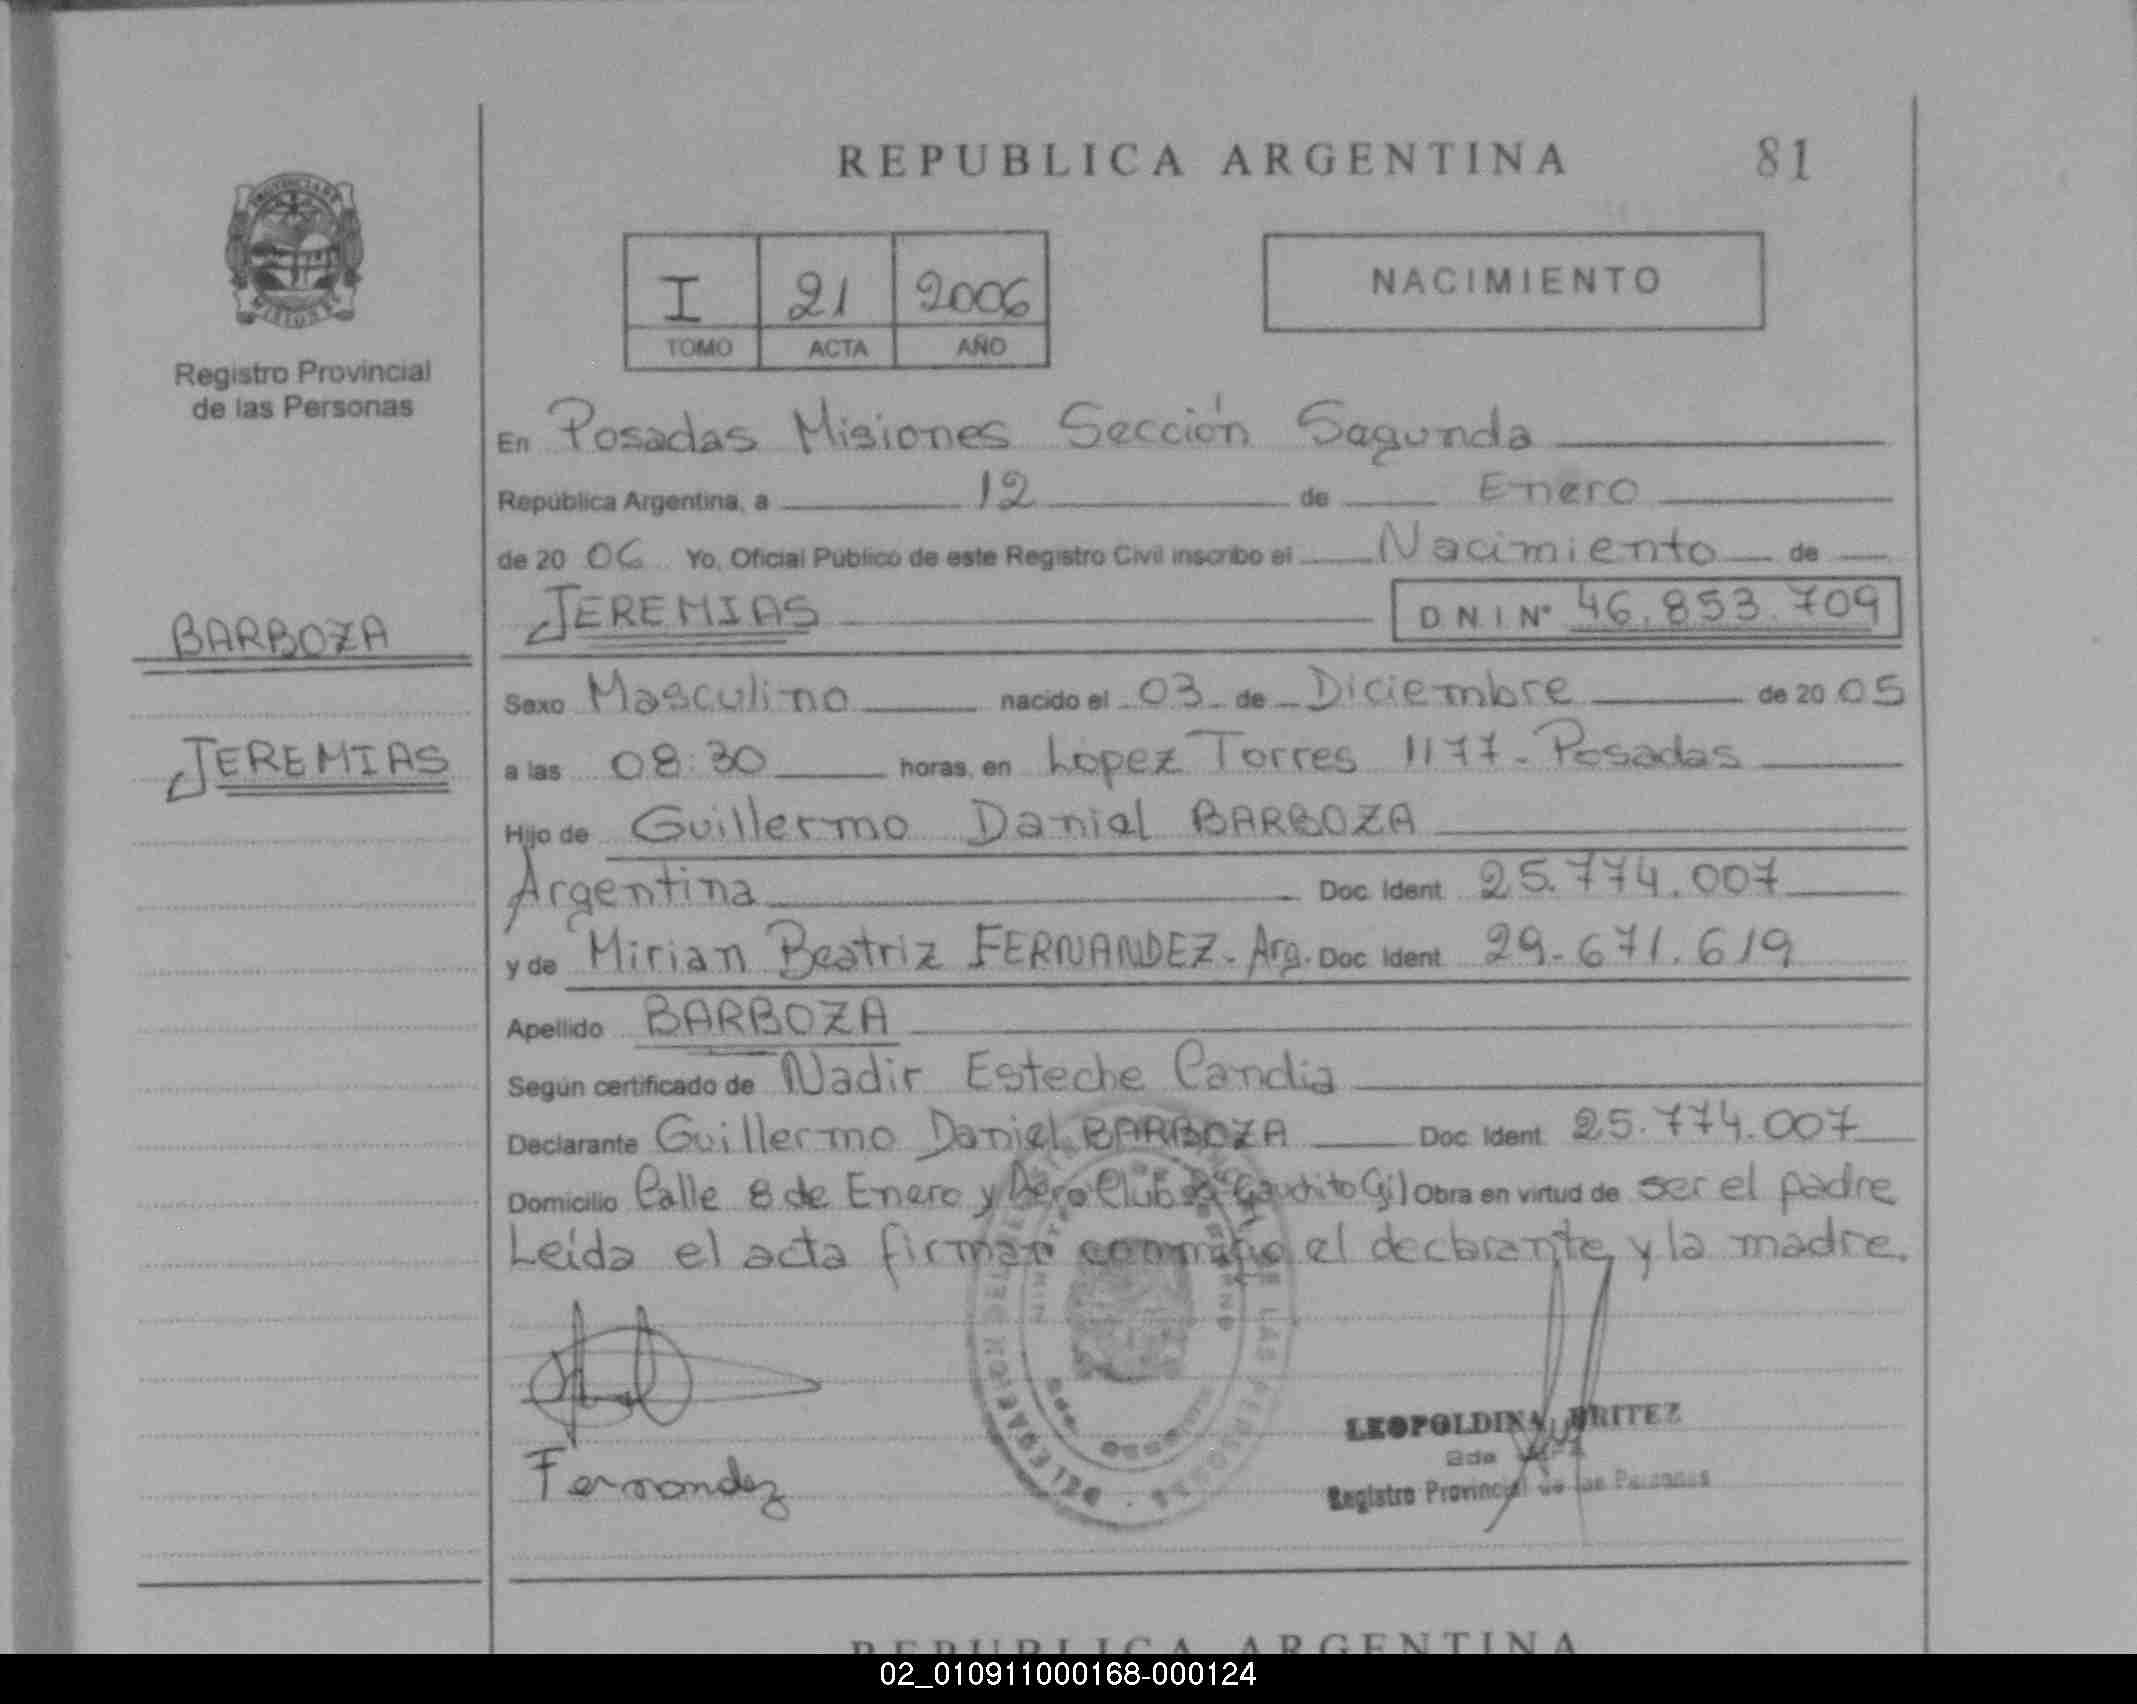 REPUBLICA ARGENTINA 81
PROVINCIA DE
MISIONES
Registro Provincial
de las Personas
I 21 2006
TOMO ACTA AÑO
NACIMIENTO
En Posadas Misiones Sección Sagunda
República Argentina, a 12 de Enero
de 20 06 Yo, Oficial Público de este Registro Civil inscribo el Nacimiento de
JEREMIAS D.N.I Nº 46.853.709
BARBOZA
JEREMIAS
Sexo Masculino nacido el 03 de Diciembre de 20 05
a las 08:30 horas, en Lopez Torres 1177 - Posadas
Hijo de Guillermo Daniel BARBOZA
Argentina Doc. Ident. 25.774.007
y de Mirian Beatriz FERNANDEZ - Arg. Doc. Ident. 29.671.619
Apellido BARBOZA
Según certificado de Nadir Esteche Candia
Declarante Guillermo Daniel BARBOZA Doc. Ident. 25.774.007
Domicilio Calle 8 de Enero y Aero Club Gauchito Gil Obra en virtud de ser el padre
Leída el acta firman conmigo el declarante y la madre.
Fernandez
LEOPOLDINA BRITEZ
Registro Provincial de las Personas
REPUBLICA ARGENTINA
02_010911000168-000124